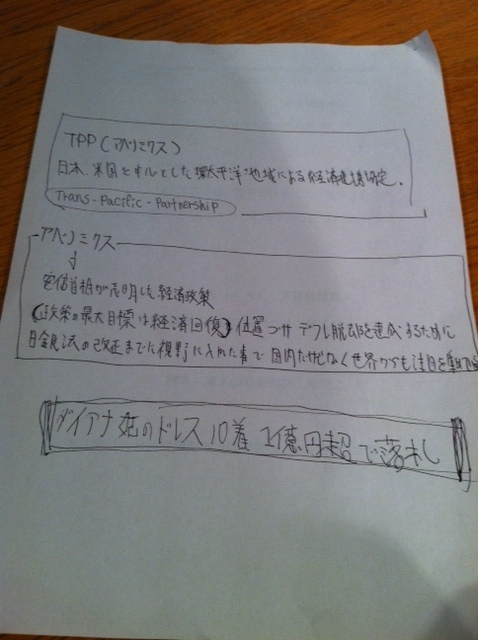 TPP(アベノミクス)
日本、米国を中心とした環太平洋地域による経済連携協定.
Trans-Pacific-Partnership
アベノミクス
↓
安倍首相が表明した経済政策
(政策の最大目標は経済回復) 位置づけ デフレ脱却を達成するために
日銀法の改正までに視野に入れた事で国内だけじなく世界からも注目を集めている
ダイアナ妃のドレス10着 1億円超で落札